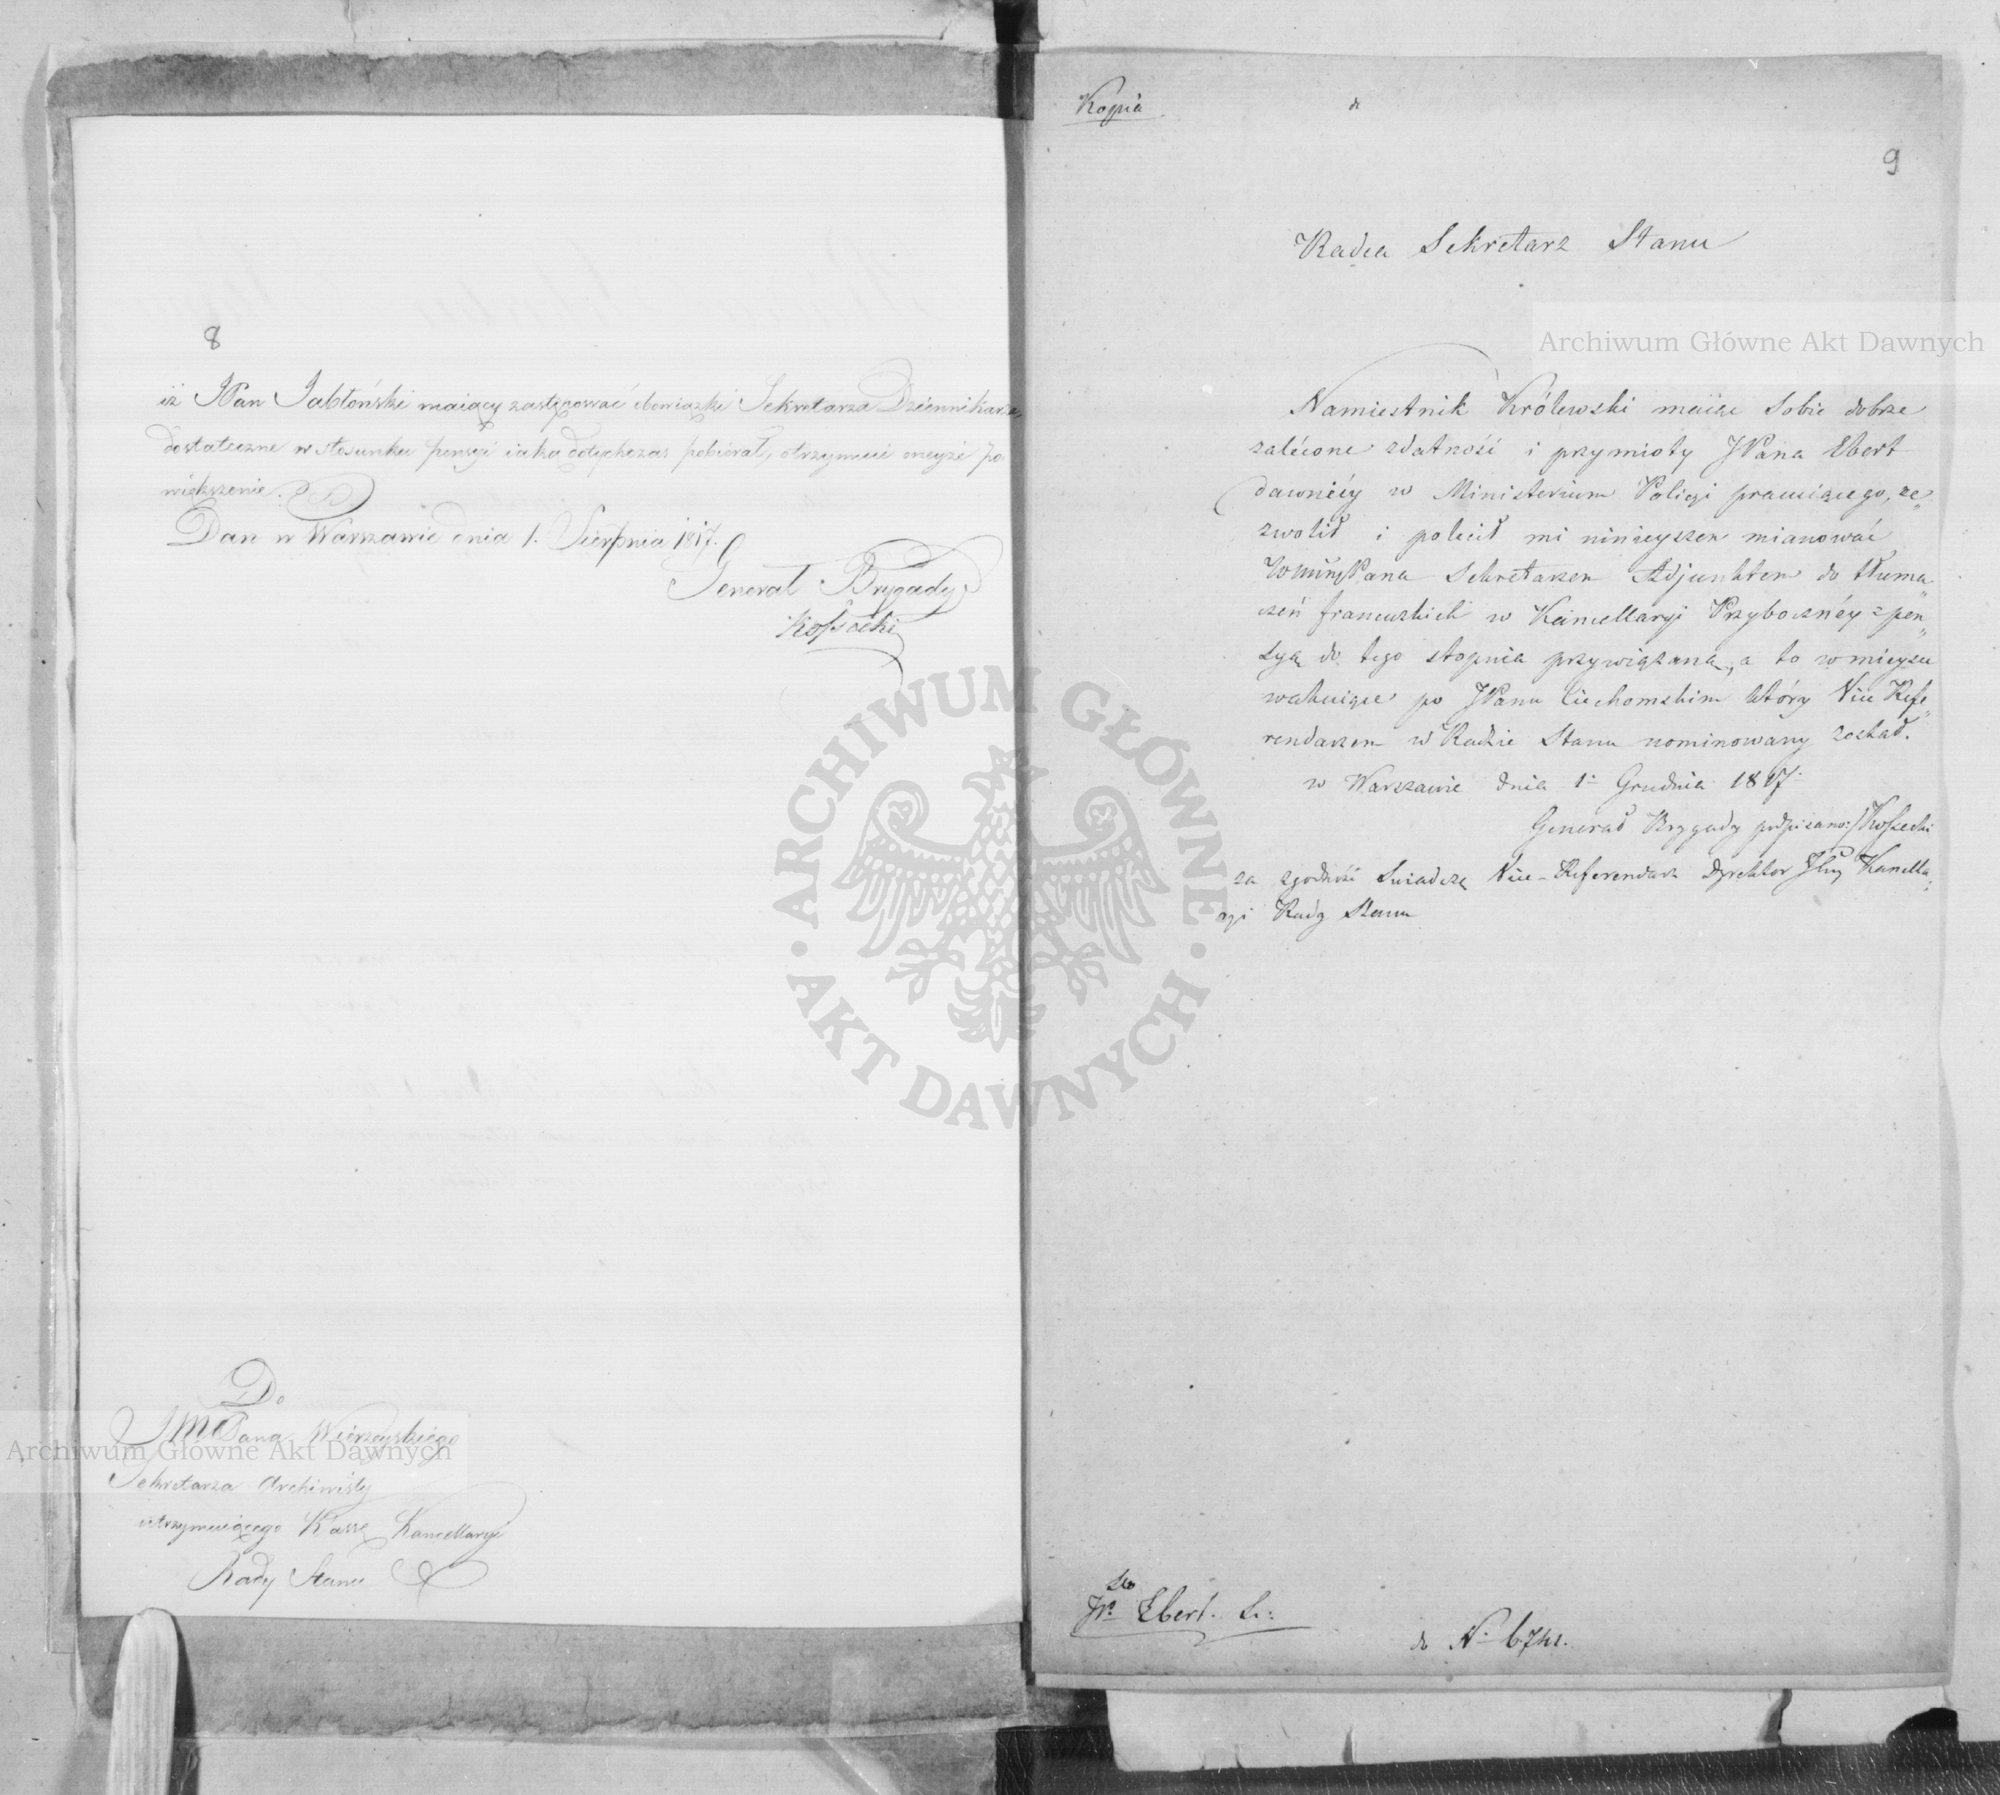 8
iż JPan Jabłoński maiący zastępować obowiązki Sekretarza Dziennikarza,
dostateczne w stosunku pensyi iaką dotychczas pobierał, otrzymać oneyże po
większenie.
Dan w Warszawie dnia 1. Sierpnia 1817.
Generał Brygady
Kossecki
Do
JMPana Wierzeyskiego
Sekretarza Archiwisty
utrzymuiącego Kassę Kancellaryi
Rady Stanu
Kopia
9
Radca Sekretarz Stanu
Namiestnik Królewski maiąc sobie dobrze
zalécone zdatność i przymioty JPana Ebert
dawniéy w Ministerium Policyi pracuiącego, ze„
zwolił i polecił mi ninieyszem mianować
Sekretarzem Adjunktem do tłuma„
czeń francuzkich w Kancellaryi Przybocznéy z pen„
syą do tego stopnia przywiązaną, a to w mieysce
wakuiące po JPanu Ciechomskim który Vice Refe„
rendarzem w Radzie Stanu nominowany został.
w Warszawie dnia 1 Grudnia 1817
Generał Brygady podpisano:/ Kossecki
za zgodność świadczę Vice-Referendarz Dyrektor Kancella„
ryi Rady Stanu
Ebert
do N. 6741.
Archiwum Główne Akt Dawnych
Archiwum Główne Akt Dawnych
ARCHIWUM GŁÓWNE · AKT DAWNYCH ·